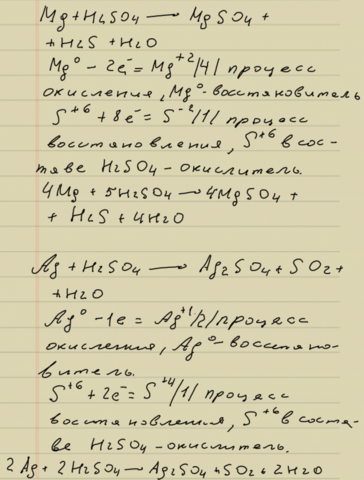 Mg + H2SO4 — MgSO4 +
+ H2S + H2O
Mg⁰ – 2e⁻ = Mg⁺² /4/ процесс
окисления, Mg⁰-восстановитель
S⁺⁶ + 8e⁻ = S⁻² /1/ процесс
восстановления, S⁺⁶ в сос-
таве H2SO4 – окислитель.
4Mg + 5H2SO4 — 4MgSO4 +
+ H2S + 4H2O
Ag + H2SO4 — Ag2SO4 + SO2 +
+ H2O
Ag⁰ – 1e = Ag⁺¹ /2/ процесс
окисления, Ag⁰-восстано-
витель.
S⁺⁶ + 2e⁻ = S⁺⁴ /1/ процесс
восстановления, S⁺⁶ в соста-
ве H2SO4 – окислитель.
2Ag + 2H2SO4 — Ag2SO4 + SO2 + 2H2O